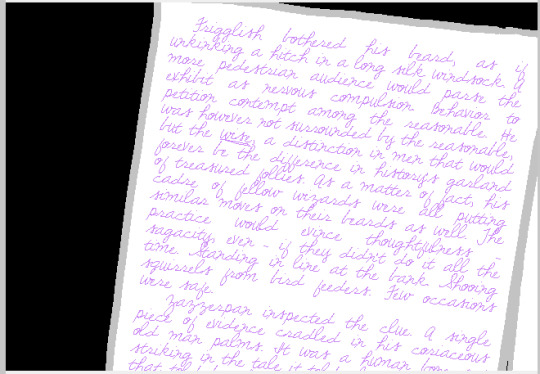 Frigglish bothered his beard, as if
unkinking a hitch in a long silk windsock. A
more pedestrian audience would parse the
exhibit as nervous compulsion. Behavior to
petition contempt among the reasonable. He
was however not surrounded by the reasonable,
but the wise, a distinction in men that would
forever be the difference in history's garland
of treasured follies. As a matter of fact, his
cadre of fellow wizards were all putting
similar moves on their beards as well. The
practice would evince thoughtfulness,
sagacity, even - if they didn't do it all the
time. Standing in line at the bank. Shooing
squirrels from bird feeders. Few occasions
were safe.
Zazzerpan inspected the clue. A single
piece of evidence cradled in his coriaceous
old man palms. It was a human bone
striking in the tale it
that